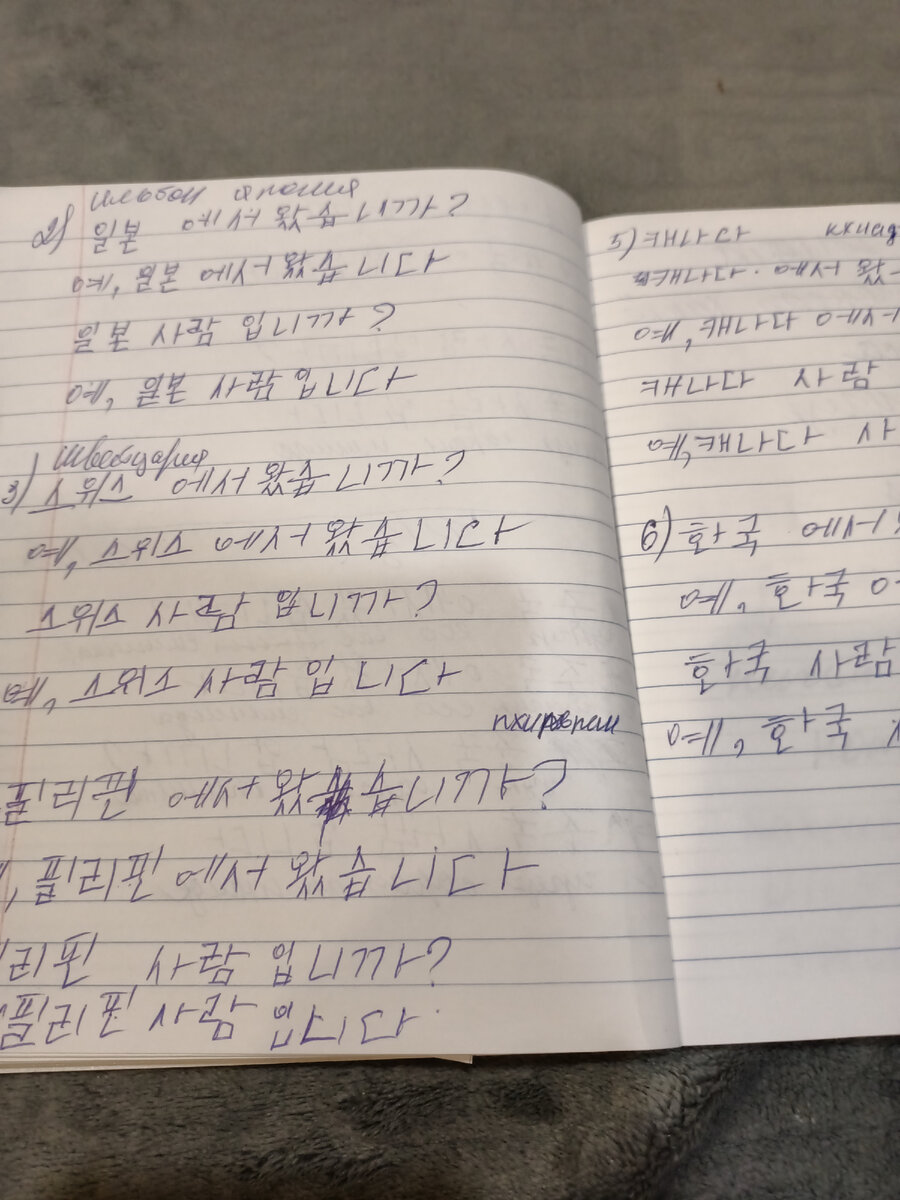 ильбон япония
2) 일본 에서 왔습니까?
예, 일본 에서 왔습니다
일본 사람 입니까?
예, 일본 사람 입니다
Швейцария
3) 스위스 에서 왔습니까?
예, 스위스 에서 왔습니다
스위스 사람 입니까?
예, 스위스 사람 입니다
필리핀 에서 왔습니까?
, 필리핀 에서 왔습니다
리핀 사람 입니까?
필리핀 사람 입니다.
5) 캐나다
캐나다 에서 왔
예, 캐나다 에서
캐나다 사람
예, 캐나다 사
6) 한국 에서
예, 한국 에
한국 사람
예, 한국 사